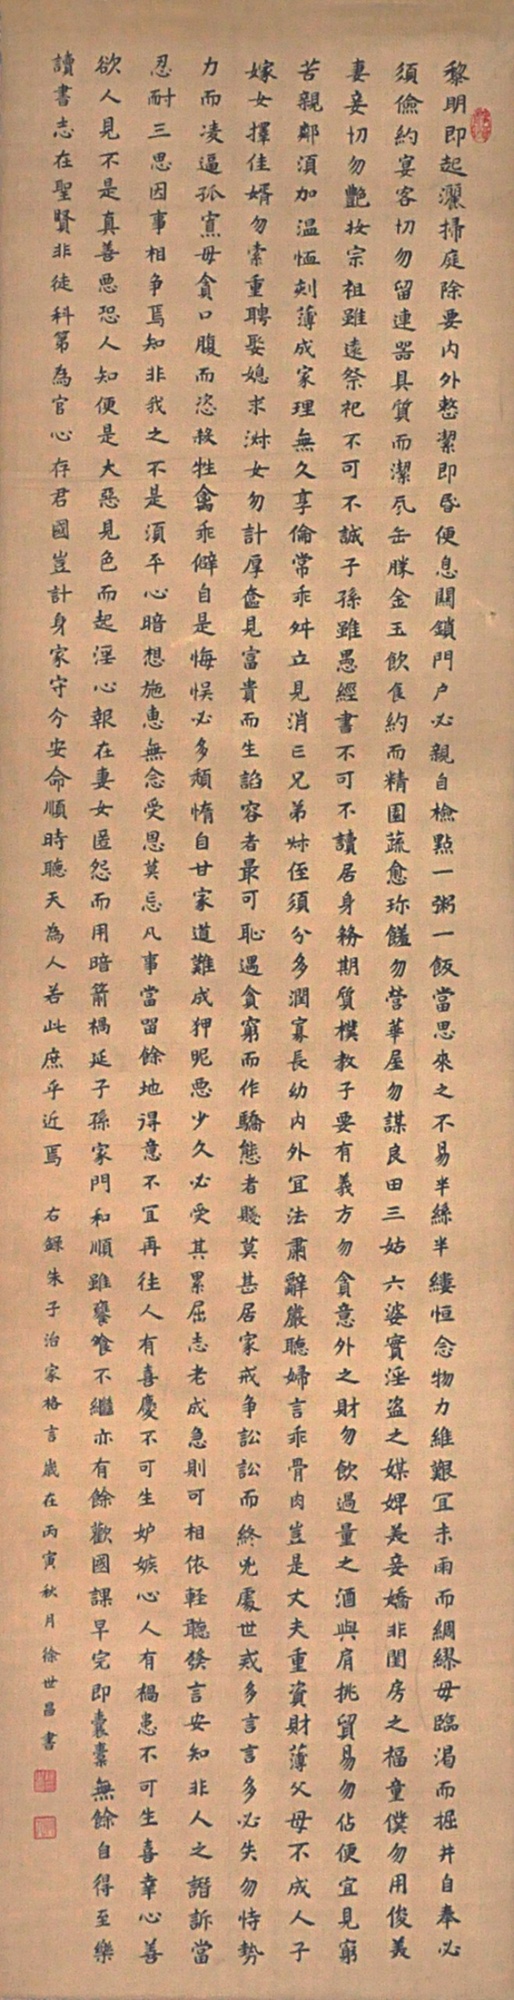 黎明即起灑掃庭除要內外整潔即昏便息關鎖門戶必親自檢點一粥一飯當思來之不易半絲半縷恒念物力維艱宜未雨而綢繆毋臨渴而掘井自奉必
須儉約宴客切勿留連器具質而潔瓦缶勝金玉飲食約而精園蔬愈珍饈勿營華屋勿謀良田三姑六婆實淫盜之媒婢美妾嬌非閨房之福童僕勿用俊美
妻妾切勿艷妝宗祖雖遠祭祀不可不誠子孫雖愚經書不可不讀居身務期質樸教子要有義方勿貪意外之財勿飲過量之酒與肩挑貿易勿佔便宜見窮
苦親鄰須加溫恤刻薄成家理無久享倫常乖舛立見消亡兄弟叔侄須分多潤寡長幼內外宜法肅辭嚴聽婦言乖骨肉豈是丈夫重資財薄父母不成人子
嫁女擇佳婿勿索重聘娶媳求淑女勿計厚奩見富貴而生諂容者最可恥遇貧窮而作驕態者賤莫甚居家戒爭訟訟而終凶處世戒多言言多必失勿恃勢
力而凌逼孤寡毋貪口腹而恣殺牲禽乖僻自是悔悞必多頹惰自甘家道難成狎昵惡少久必受其累屈志老成急則可相依輕聽發言安知非人之譖訴當
忍耐三思因事相爭焉知非我之不是須平心暗想施惠無念受恩莫忘凡事當留餘地得意不宜再往人有喜慶不可生妒嫉心人有禍患不可生喜幸心善
欲人見不是真善惡恐人知便是大惡見色而起淫心報在妻女匿怨而用暗箭禍延子孫家門和順雖饔飧不繼亦有餘歡國課早完即囊橐無餘自得至樂
讀書志在聖賢非徒科第為官心存君國豈計身家守分安命順時聽天為人若此庶乎近焉 右錄朱子治家格言歲在丙寅秋月徐世昌書